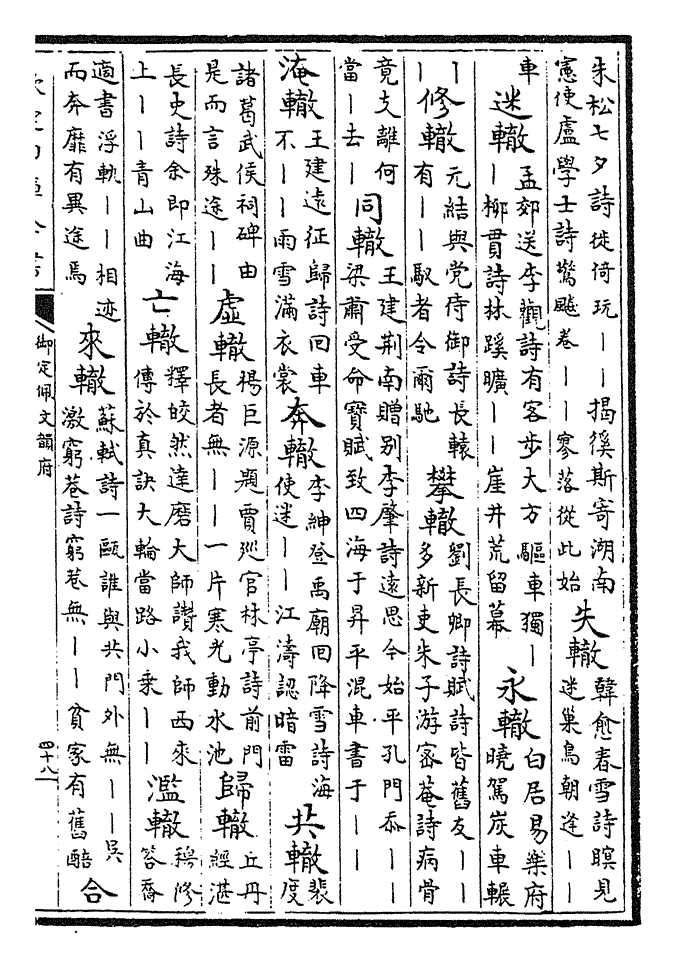 朱松七夕詩徙倚玩丨丨揭徯斯寄湖南
憲使盧學士詩驚飈卷丨丨寥落從此始
失轍
韓愈春雪詩暝見
迷巢鳥朝逢丨丨
車
迷轍
孟郊送李觀詩有客步大方驅車獨丨
丨柳貫詩林蹊曠丨丨崖井荒留幕
永轍
白居易樂府
曉駕炭車輾
丨
丨
修轍
元結與党侍御詩長轅
有丨丨馭者令爾馳
攀轍
劉長卿詩賦詩皆舊友丨丨
多新吏朱子游密菴詩病骨
竟支離何
當丨去丨
同轍
王建荆南贈别李肇詩遠思今始平孔門忝丨丨
梁肅受命寶賦致四海于昇平混車書于丨丨
淹轍
王建遠征歸詩回車
不丨丨雨雪滿衣裳
奔轍
李紳登禹廟回降雪詩海
使迷丨丨江濤認暗雷
共轍
裴
度
諸葛武侯祠碑由
是而言殊途丨丨
虛轍
楊巨源題賈巡官林亭詩前門
長者無丨丨一片寒光動水池
歸轍
丘丹
經湛
長史詩余即江海
上丨丨青山曲
亡轍
釋皎然達磨大師讃我師西來
傳於真訣大輪當路小乗丨丨
濫轍
穆修
答喬
適書浮軌丨丨相迹
而奔靡有異途焉
來轍
蘇軾詩一甌誰與共門外無丨丨吳
激窮巷詩窮巷無丨丨貧家有舊醅
合
御定佩文韻府
四十八